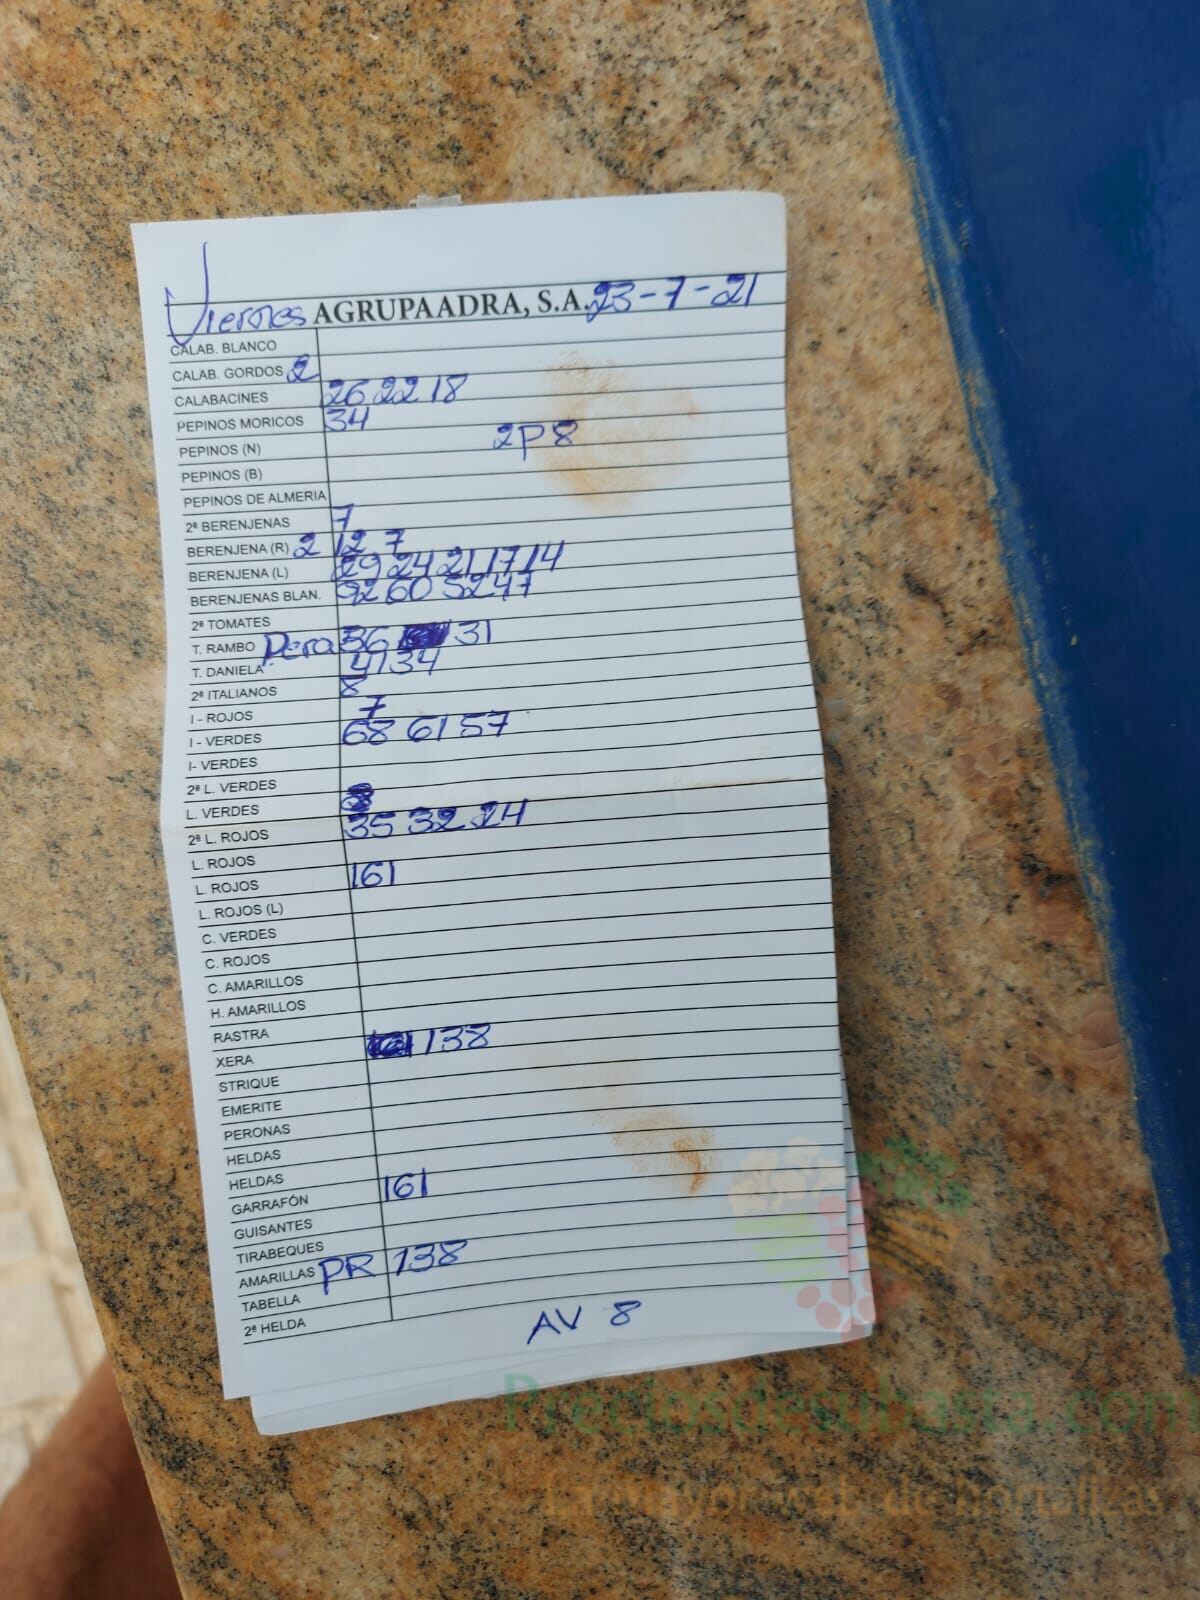 Viernes AGRUPAADRA, S.A. 23-7-21
CALAB. BLANCO
CALAB. GORDOS 2
CALABACINES 26 22 18
PEPINOS MORICOS 34
PEPINOS (N) 2P8
PEPINOS (B)
PEPINOS DE ALMERIA
2ª BERENJENAS 7
BERENJENA (R) 2 12 7
BERENJENA (L) 29 24 21 17 14
BERENJENAS BLAN. 92 60 52 47
2ª TOMATES
T. RAMBO Pera 36 31
T. DANIELA 41 34
2ª ITALIANOS 8
I - ROJOS 7
I - VERDES 68 61 57
I- VERDES
2ª L. VERDES
L. VERDES 8
2ª L. ROJOS 35 32 24
L. ROJOS
L. ROJOS 161
L. ROJOS (L)
C. VERDES
C. ROJOS
C. AMARILLOS
H. AMARILLOS
RASTRA
XERA 138
STRIQUE
EMERITE
PERONAS
HELDAS
HELDAS
GARRAFÓN 161
GUISANTES
TIRABEQUES
AMARILLAS PR 138
TABELLA
2ª HELDA
AV 8
Preciosdesubasta.com
La mayor web de hortalizas